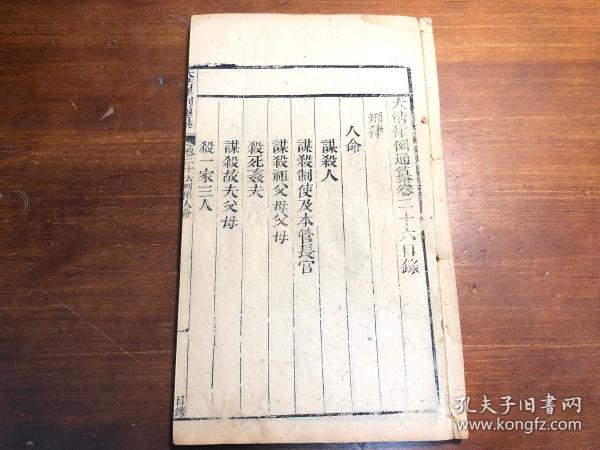 大清律例通纂卷二十六目錄
刑律
人命
謀殺人
謀殺制使及本管長官
謀殺祖父母父母
殺死姦夫
謀殺故夫父母
殺一家三人
卷二十六刑律人命
一
目錄
孔夫子旧书网
www.kongfz.com